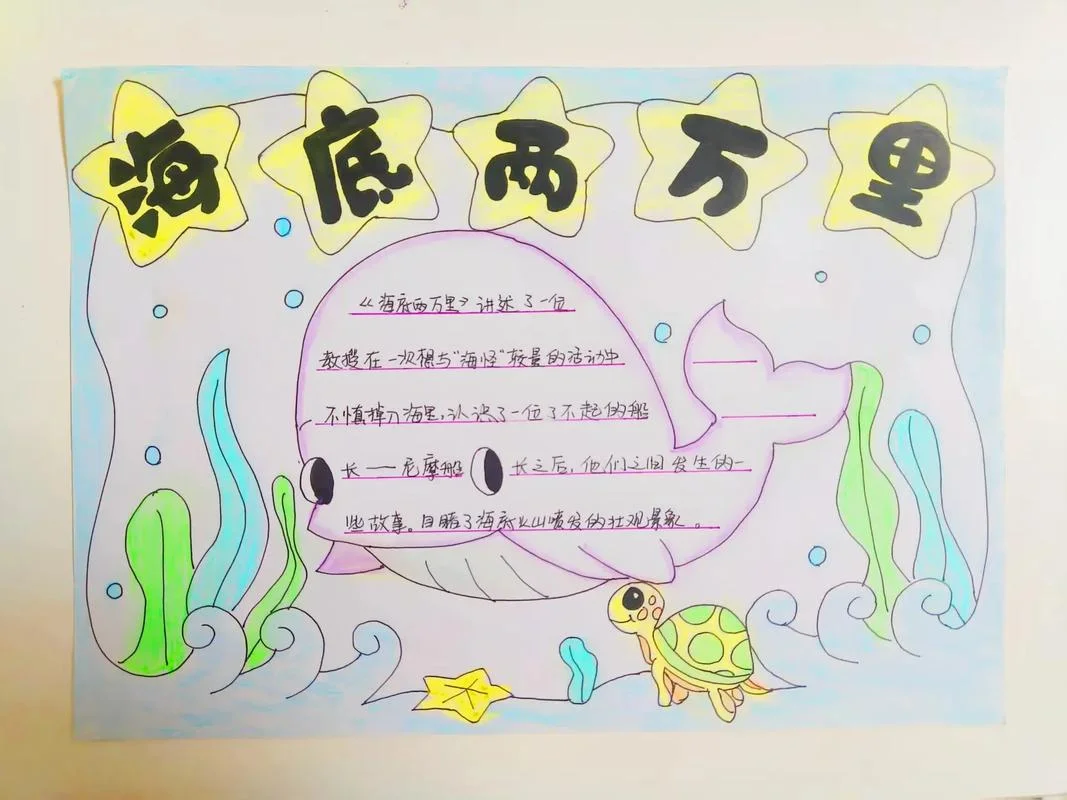 海底两万里
《海底两万里》讲述了一位
教授在一次想与“海怪”较量的活动中
不慎掉入海里,认识了一位了不起的船
长——尼摩船 长之后,他们之间发生的一
些故事。目睹了海底火山喷发的壮观景象。